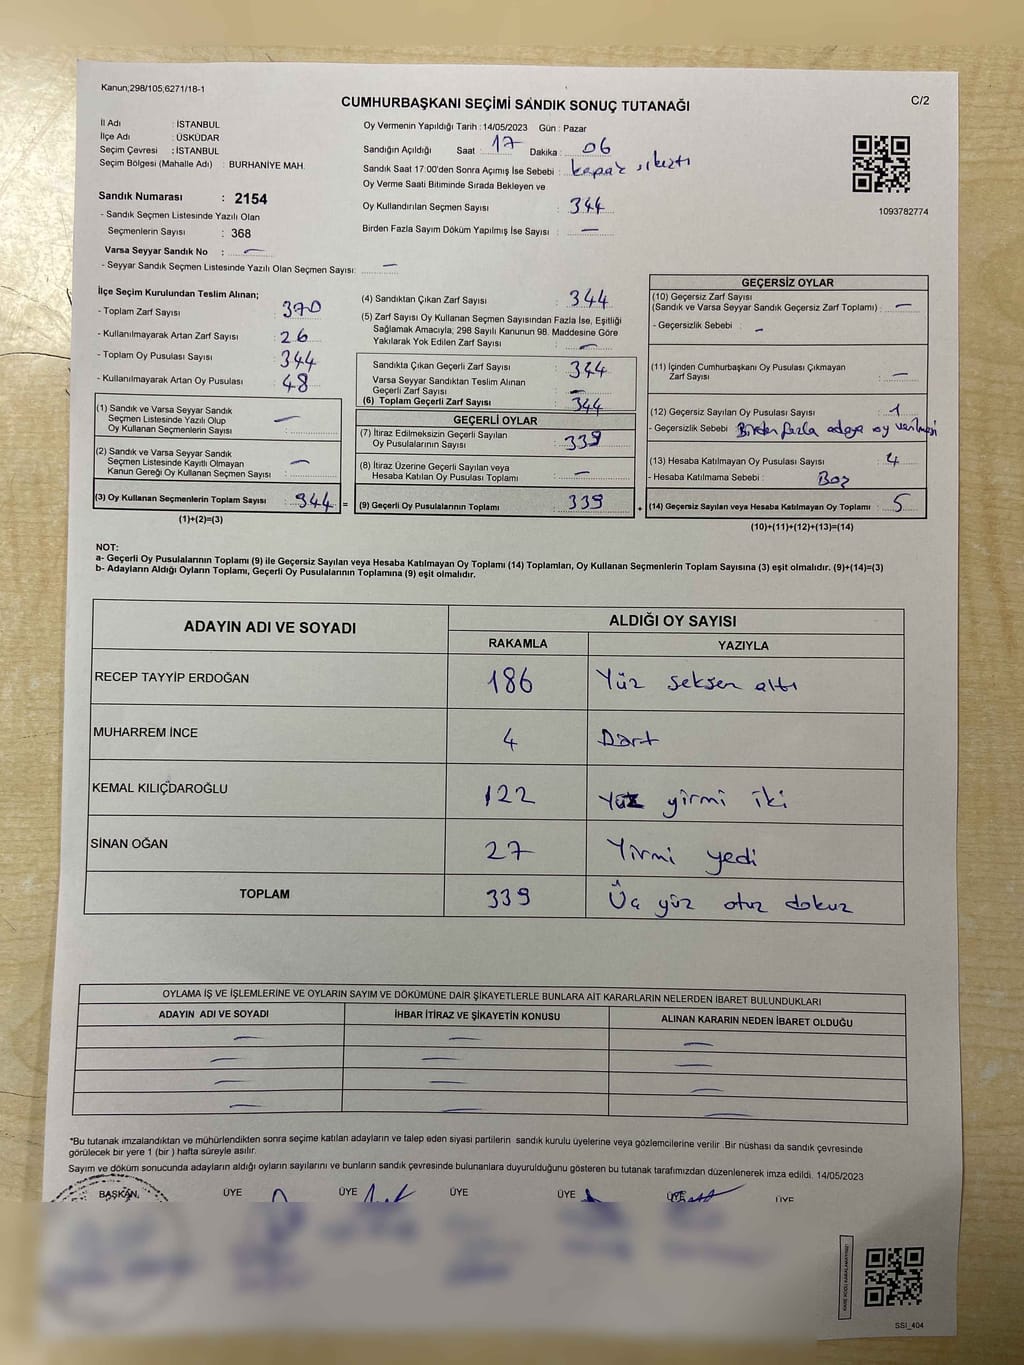 Kanun;298/105;6271/18-1
C/2
CUMHURBAŞKANI SEÇİMİ SANDIK SONUÇ TUTANAĞI
İl Adı : İSTANBUL
İlçe Adı : ÜSKÜDAR
Seçim Çevresi : İSTANBUL
Seçim Bölgesi (Mahalle Adı) : BURHANİYE MAH.
Sandık Numarası : 2154
- Sandık Seçmen Listesinde Yazılı Olan
Seçmenlerin Sayısı : 368
Varsa Seyyar Sandık No : —
- Seyyar Sandık Seçmen Listesinde Yazılı Olan Seçmen Sayısı: —
Oy Vermenin Yapıldığı Tarih : 14/05/2023 Gün : Pazar
Sandığın Açıldığı Saat : 17 Dakika : 06
Sandık Saat 17:00'den Sonra Açımış İse Sebebi :
Oy Verme Saati Bitiminde Sırada Bekleyen ve
Oy Kullandırılan Seçmen Sayısı : 344
Birden Fazla Sayım Döküm Yapılmış İse Sayısı : —
1093782774
İlçe Seçim Kurulundan Teslim Alınan;
- Toplam Zarf Sayısı : 370
- Kullanılmayarak Artan Zarf Sayısı : 26
- Toplam Oy Pusulası Sayısı : 344
- Kullanılmayarak Artan Oy Pusulası : 48
(1) Sandık ve Varsa Seyyar Sandık
Seçmen Listesinde Yazılı Olup
Oy Kullanan Seçmenlerin Sayısı : —
(2) Sandık ve Varsa Seyyar Sandık
Seçmen Listesinde Kayıtlı Olmayan
Kanun Gereği Oy Kullanan Seçmen Sayısı : —
(3) Oy Kullanan Seçmenlerin Toplam Sayısı : 344 =
(1)+(2)=(3)
(4) Sandıktan Çıkan Zarf Sayısı : 344
(5) Zarf Sayısı Oy Kullanan Seçmen Sayısından Fazla İse, Eşitliği
Sağlamak Amacıyla, 298 Sayılı Kanunun 98. Maddesine Göre
Yakılarak Yok Edilen Zarf Sayısı : —
Sandıkta Çıkan Geçerli Zarf Sayısı : 344
Varsa Seyyar Sandıktan Teslim Alınan
Geçerli Zarf Sayısı : —
(6) Toplam Geçerli Zarf Sayısı : 344
GEÇERLİ OYLAR
(7) İtiraz Edilmeksizin Geçerli Sayılan
Oy Pusulalarının Sayısı : 339
(8) İtiraz Üzerine Geçerli Sayılan veya
Hesaba Katılan Oy Pusulası Toplamı : —
(9) Geçerli Oy Pusulalarının Toplamı : 339 +
GEÇERSİZ OYLAR
(10) Geçersiz Zarf Sayısı
(Sandık ve Varsa Seyyar Sandık Geçersiz Zarf Toplamı) : —
- Geçersizlik Sebebi : —
(11) İçinden Cumhurbaşkanı Oy Pusulası Çıkmayan
Zarf Sayısı : —
(12) Geçersiz Sayılan Oy Pusulası Sayısı : 1
- Geçersizlik Sebebi : Birden fazla adaya oy verilmesi
(13) Hesaba Katılmayan Oy Pusulası Sayısı : 4
- Hesaba Katılmama Sebebi : Boş
(14) Geçersiz Sayılan veya Hesaba Katılmayan Oy Toplamı : 5
(10)+(11)+(12)+(13)=(14)
NOT:
a- Geçerli Oy Pusulalarının Toplamı (9) ile Geçersiz Sayılan veya Hesaba Katılmayan Oy Toplamı (14) Toplamları, Oy Kullanan Seçmenlerin Toplam Sayısına (3) eşit olmalıdır. (9)+(14)=(3)
b- Adayların Aldığı Oyların Toplamı, Geçerli Oy Pusulalarının Toplamına (9) eşit olmalıdır.
ADAYIN ADI VE SOYADI
ALDIĞI OY SAYISI
RAKAMLA YAZIYLA
RECEP TAYYİP ERDOĞAN 186 Yüz seksen altı
MUHARREM İNCE 4 Dört
KEMAL KILIÇDAROĞLU 122 Yüz yirmi iki
SİNAN OĞAN 27 Yirmi yedi
TOPLAM 339 Üç yüz otuz dokuz
OYLAMA İŞ VE İŞLEMLERİNE VE OYLARIN SAYIM VE DÖKÜMÜNE DAİR ŞİKAYETLERLE BUNLARA AİT KARARLARIN NELERDEN İBARET BULUNDUKLARI
ADAYIN ADI VE SOYADI İHBAR İTİRAZ VE ŞİKAYETİN KONUSU ALINAN KARARIN NEDEN İBARET OLDUĞU
— — —
— — —
— — —
— — —
*Bu tutanak imzalandıktan ve mühürlendikten sonra seçime katılan adayların ve talep eden siyasi partilerin sandık kurulu üyelerine veya gözlemcilerine verilir .Bir nüshası da sandık çevresinde
görülecek bir yere 1 (bir ) hafta süreyle asılır.
Sayım ve döküm sonucunda adayların aldığı oyların sayılarını ve bunların sandık çevresinde bulunanlara duyurulduğunu gösteren bu tutanak tarafımızdan düzenlenerek imza edildi. 14/05/2023
BAŞKAN ÜYE ÜYE ÜYE ÜYE ÜYE ÜYE
SSI_404